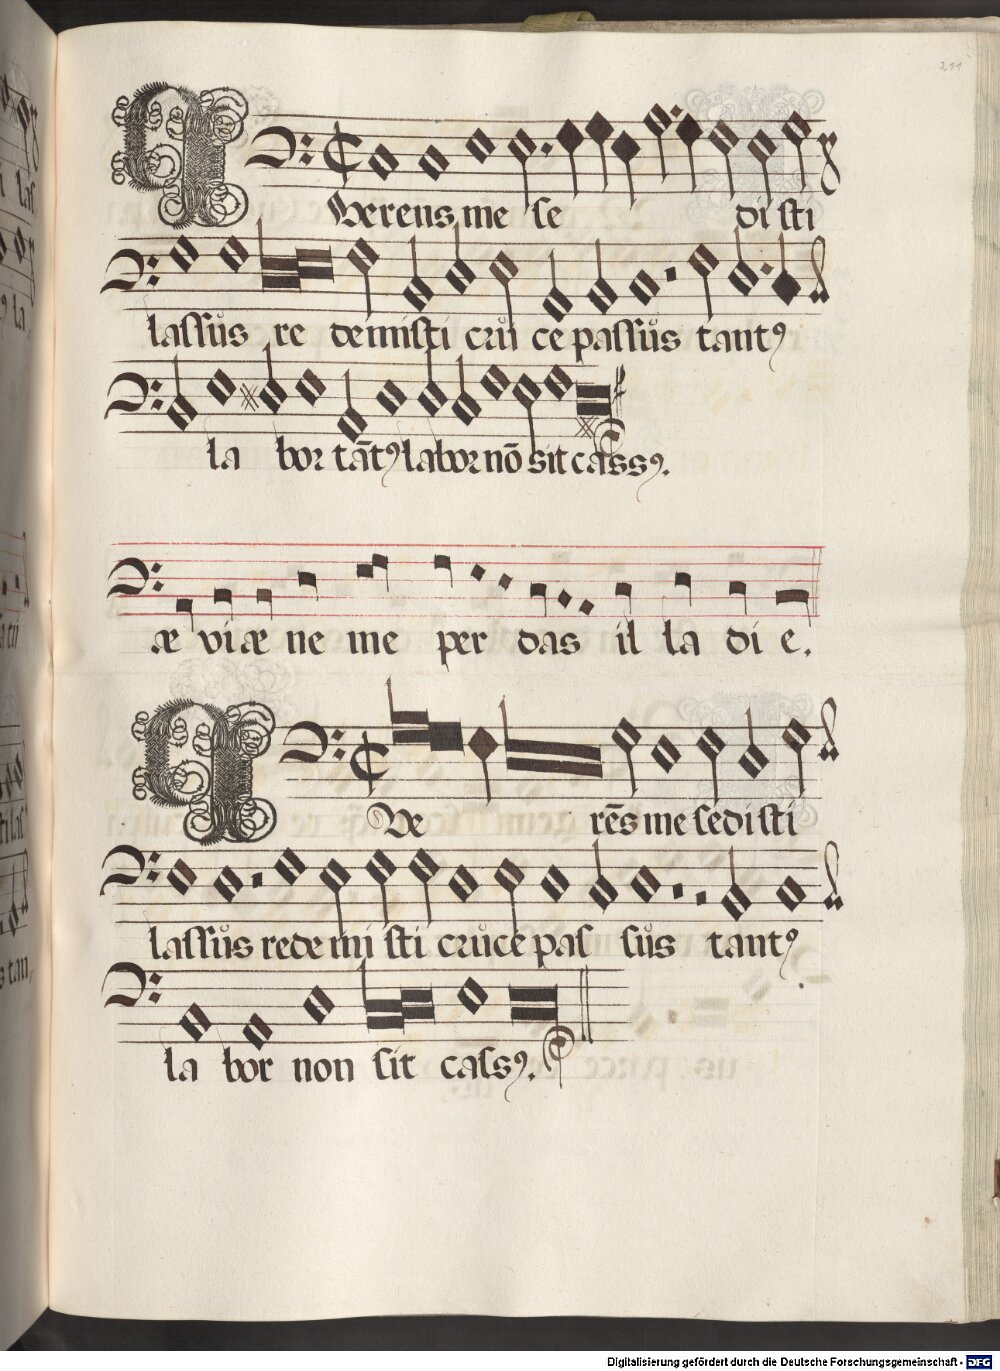 291
Querens me se disti
lassus re demisti cru ce passus tantꝰ
la bor tātꝰ labor nō sit cassꝰ.
æ viæ ne me per das il la di e.
Que rēs me sedisti
lassus redemi sti cruce pas sus tantꝰ
la bor non sit cassꝰ.
Digitalisierung gefördert durch die Deutsche Forschungsgemeinschaft - DFG